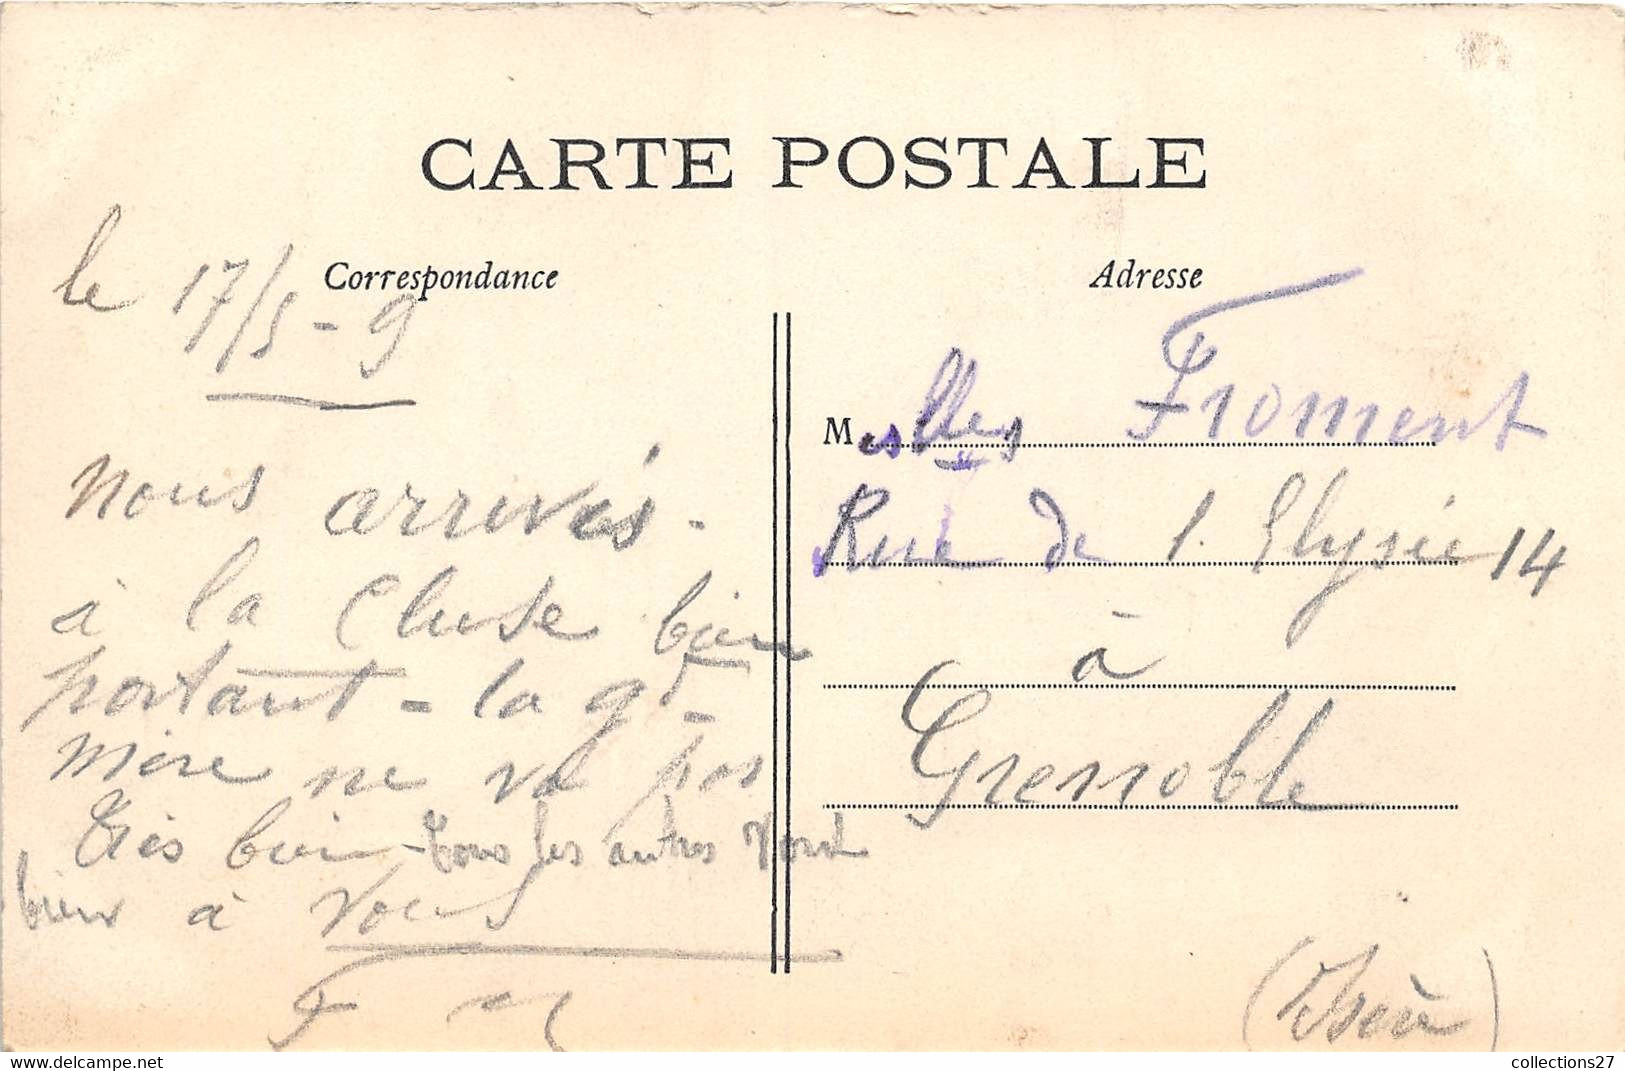 CARTE POSTALE
Correspondance
le 17/5-9
nous arrivés-
à la Cluse bien
portant - la gd-
mère ne va pas
très bien - tous les autres vont
bien à vous
F
Adresse
Meslles Froment
Rue de l. Elysée 14
à
Grenoble
(Isère)
collections27